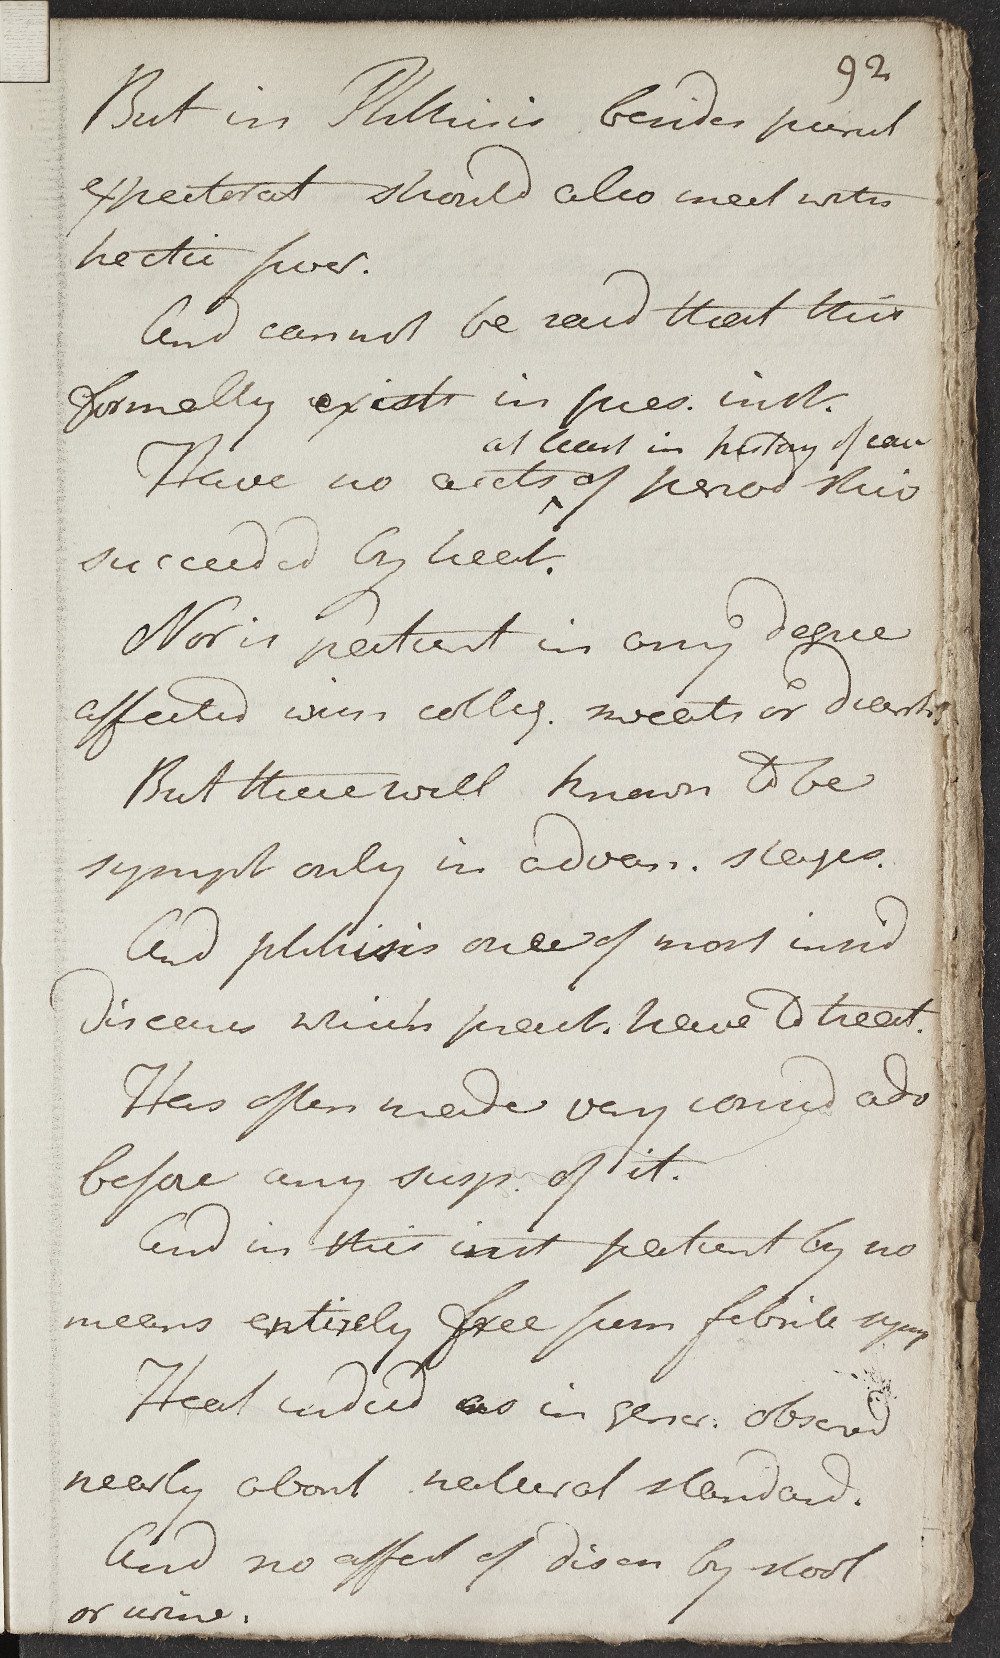 92
But in Phthisis besides purul
expectorat should also meet with
hectic fever.
And cannot be said that this
formally exists in pres. inst.
at least in history of case
Have no accts of period shiv
succeeded by heat.
Nor is patient in any degree
affected with colliq. sweats or diarrh
But these well known to be
sympt only in advan. stages.
And phthisis one of most insid
diseases which pract. have to treat.
Has often made very consid adv
before any susp. of it.
And in this inst patient by no
means entirely free from febrile symp
Heat indeed as in gener. observed
nearly about natural standard.
And no affect of disch by stool
or urine.